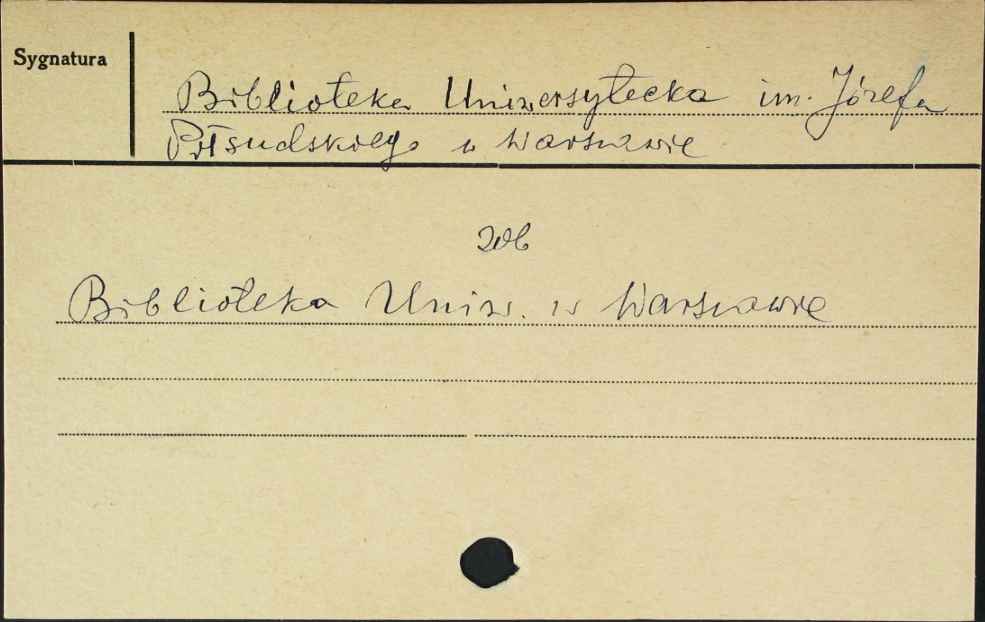 Sygnatura
Biblioteka Uniwersytecka im. Józefa
Piłsudskiego w Warszawie
zob
Biblioteka Uniw. w Warszawie